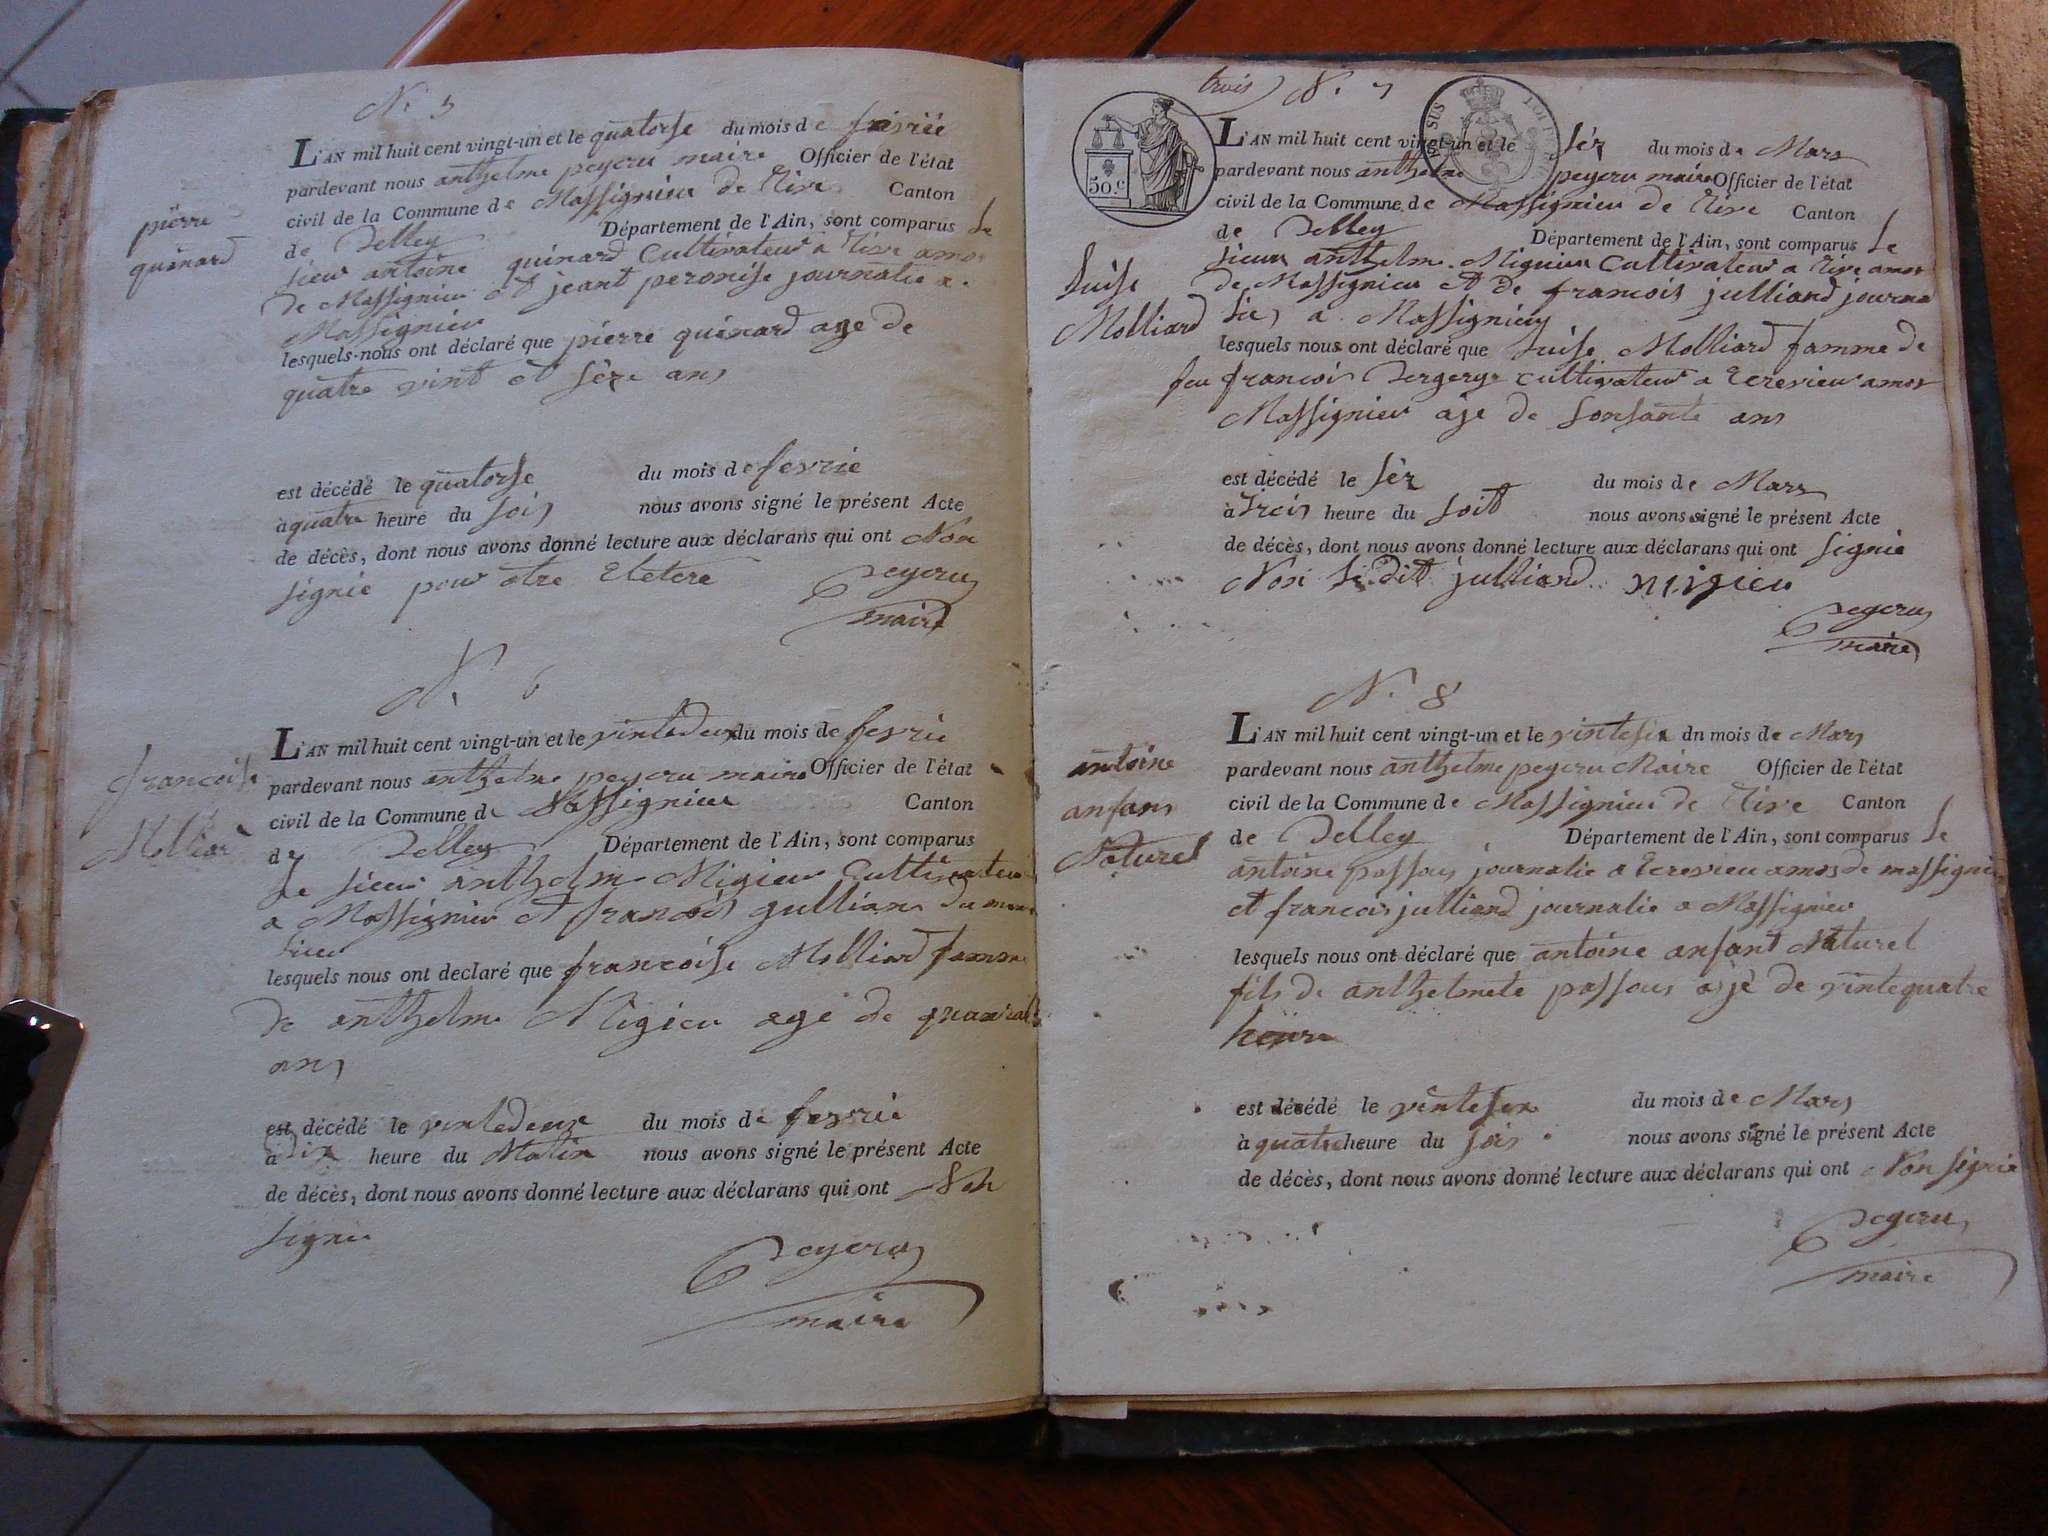 N. 5
L'AN mil huit cent vingt-un et le quatorse du mois de fevrié
pardevant nous anthelme peyeru maire Officier de l'état
civil de la Commune de Massignieu de Rive Canton
de Belley Département de l'Ain, sont comparus Le
pierre
quinard
sieur antoine quinard Cultivateur a Rive amos
de Massignieu et jeant peronise journalie a
Massignieu
lesquels nous ont déclaré que pierre quinard age de
quatre vint et sèze ans
est décédé le quatorse du mois de fevrie
à quatre heure du soir nous avons signé le présent Acte
de décès, dont nous avons donné lecture aux déclarans qui ont Non
signie pour otre Eletere
peyeru
maire
N. 6
L'AN mil huit cent vingt-un et le vintedeux du mois de fevrie
pardevant nous anthelme peyeru maire Officier de l'état
civil de la Commune de Massignieu Canton
de Belley Département de l'Ain, sont comparus
francoise
Molliar
Le sieur anthelme Migieu Cultivateur
a Massignieu et francois jullian du meme
lieu
lesquels nous ont declaré que francoise Molliard famme
de anthelme Migieu age de quarante
ans
est décédé le vintedeux du mois de fevrie
à Dix heure du Matin nous avons signé le présent Acte
de décès, dont nous avons donné lecture aux déclarans qui ont Non
signie
peyeru
maire
trois N. 7
50 c.
L'AN mil huit cent vingt-un et le sèz du mois de Mars
pardevant nous anthelme peyeru maire Officier de l'état
civil de la Commune de Massignieu de Rive Canton
de Belley Département de l'Ain, sont comparus Le
Luise
Molliard
sieur anthelme Miguieu Cultivateur a Rive amos
de Massignieu Et de francois julliard journa
lies a Massignieu
lesquels nous ont déclaré que Luise Molliard famme de
feu francois Bergerge cultivateur a Ecrevieu amos
Massignieu aje de sonsante ans
est décédé le sèz du mois de Mars
à trois heure du soit nous avons signé le présent Acte
de décès, dont nous avons donné lecture aux déclarans qui ont signie
Non Ledit julliard migieu
peyeru
maire
N. 8
L'AN mil huit cent vingt-un et le vintesix du mois de Mars
pardevant nous anthelme peyeru Maire Officier de l'état
civil de la Commune de Massignieu de Rive Canton
de Belley Département de l'Ain, sont comparus Le
antoine
anfans
Naturel
antoine passous journalie a Ecrevieu amos de massignie
et francois julliard journalie a Massignieu
lesquels nous ont déclaré que antoine anfant Naturel
fils de anthelmete passous ajé de vintequatre
heure
est décédé le vintesix du mois de Mars
à quatre heure du sois nous avons signé le présent Acte
de décès, dont nous avons donné lecture aux déclarans qui ont Non signie
peyeru
maire